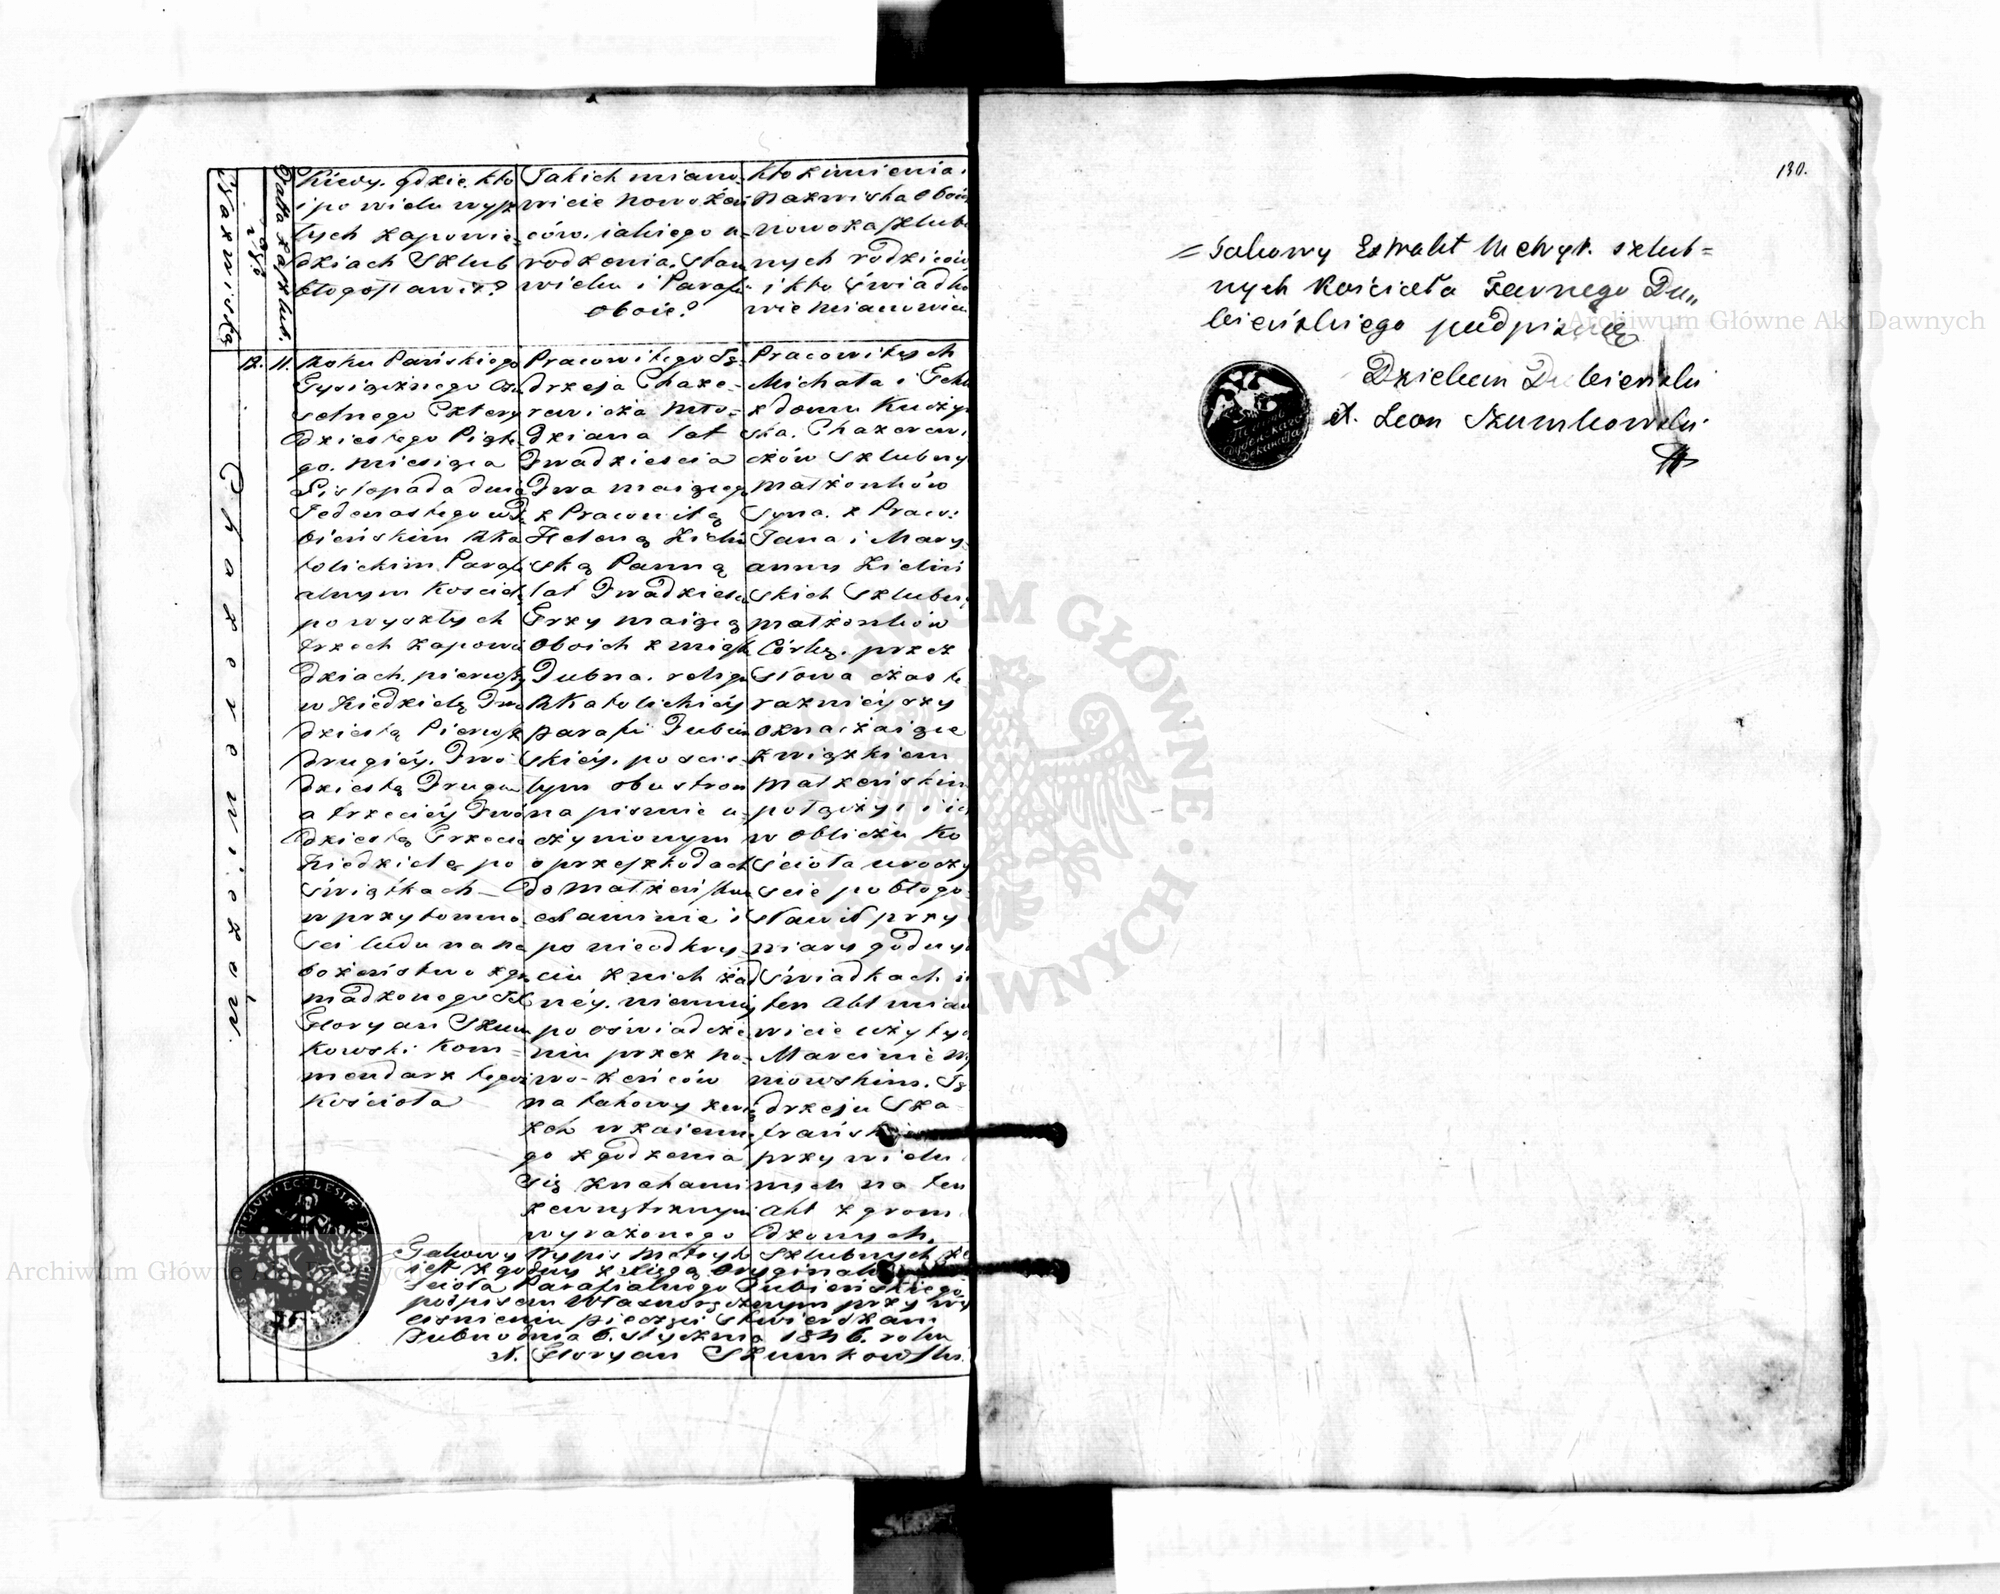 Nazwiska
Datta zaszlub.
Kiedy. gdzie. kto
i po wielu wysz
łych zapowie-
dziach Szlub
błogosławił?
Jakich miano-
wicie nowożeń
ców. iakiego u-
rodzenia. Stanu
wieku i Parafii
oboie?
Kto z imienia i
nazwiska oboie
nowozaszlubio
nych rodziców
i kto świadko
wie mianowicie
12.
Chazerewiczów.
11.
Roku Pańskiego
Tysiącznego Ośm
setnego Cztery
dziestego Piąte
go. miesiąca
Listopada dnia
Jedenastego w Du
bieńskim RKa
tolickim Parafi
alnym Kosciele
po wyszłych
trzech zapowie
dziach. pierwszey
w Niedzielę Dwu
dziestą Pierwszą
drugiéy. Dwu
dziestą Drugą
a trzeciéy Dwu
dziestą Trzecią
Niedzielę po
Świątkach
w przytomno
sci ludu na na
bożeństwo zgro
madzonego X
Floryan Szum
kowski Kom=
mendarz tegoż
Kościoła
Pracowitego Ję-
drzeja Chaze-
rewicza Mło-
dziana lat
Dwadziescia
Dwa maiącego
z Pracowitą
Heleną Zieliń
ską Panną
lat Dwadziescia
Trzy maiącą
Oboich z miasta
Dubna. religii
RKatolickiéy
parafi Dubień
skiéy. po scis-
łym obustron
na pismie u-
czynionym
o przeszkodach
do Małżeństwa
examinie i
po nieodkry-
ciu z nich żad
néy. niemniéy
po oświadcze
niu przez no-
wo-żeńców
na takowy zwią
zek wzaiemne
go zgodzenia
się znakami
zewnętrznymi
wyrażonego
Pracowitych
Michała i Tekli
z domu Kuczyń
ska. Chazerewi
czów Szlubnych
małżonków
Syna. z Praco:
Jana i Mary
anny Zieliń
skich Szlubnych
małżonków
Córkę. przez
słowa czas te
raznieyszy
oznaczaiące
związkiem
Małżeńskim
połączył i ich
w obliczu Ko
ścioła uroczy
scie pobłogo-
sławił przy
wiary godnych
Świadkach. na
ten Akt miano
wicie użytych
Marcinie
niowskim. Ję
drzeju Ska
trańskim
przy wielu
nych na ten
Akt zgroma
dzonych.
SIGILLUM ECCLESIÆ PAROCHI
Takowy Wypis Metryk Szlubnych że
iest zgodny z xięgą oryginalną
scioła Parafialnego Dubieńskiego
podpisem Własnoręcznym przy wy
ciśnieniu pieczęci stwierdzam
Dubno dnia 6. stycznia 1846. roku
X. Floryan Szumkowski
130.
= Takowy Extrakt Metryk. szlub=
nych Kościoła Farnego Du„
bieńskiego podpisuię
Dziekan Dubieński
X. Leon Szumkowski
Archiwum Główne Akt Dawnych
Archiwum Główne Akt Dawnych
ARCHIWUM GŁÓWNE AKT DAWNYCH